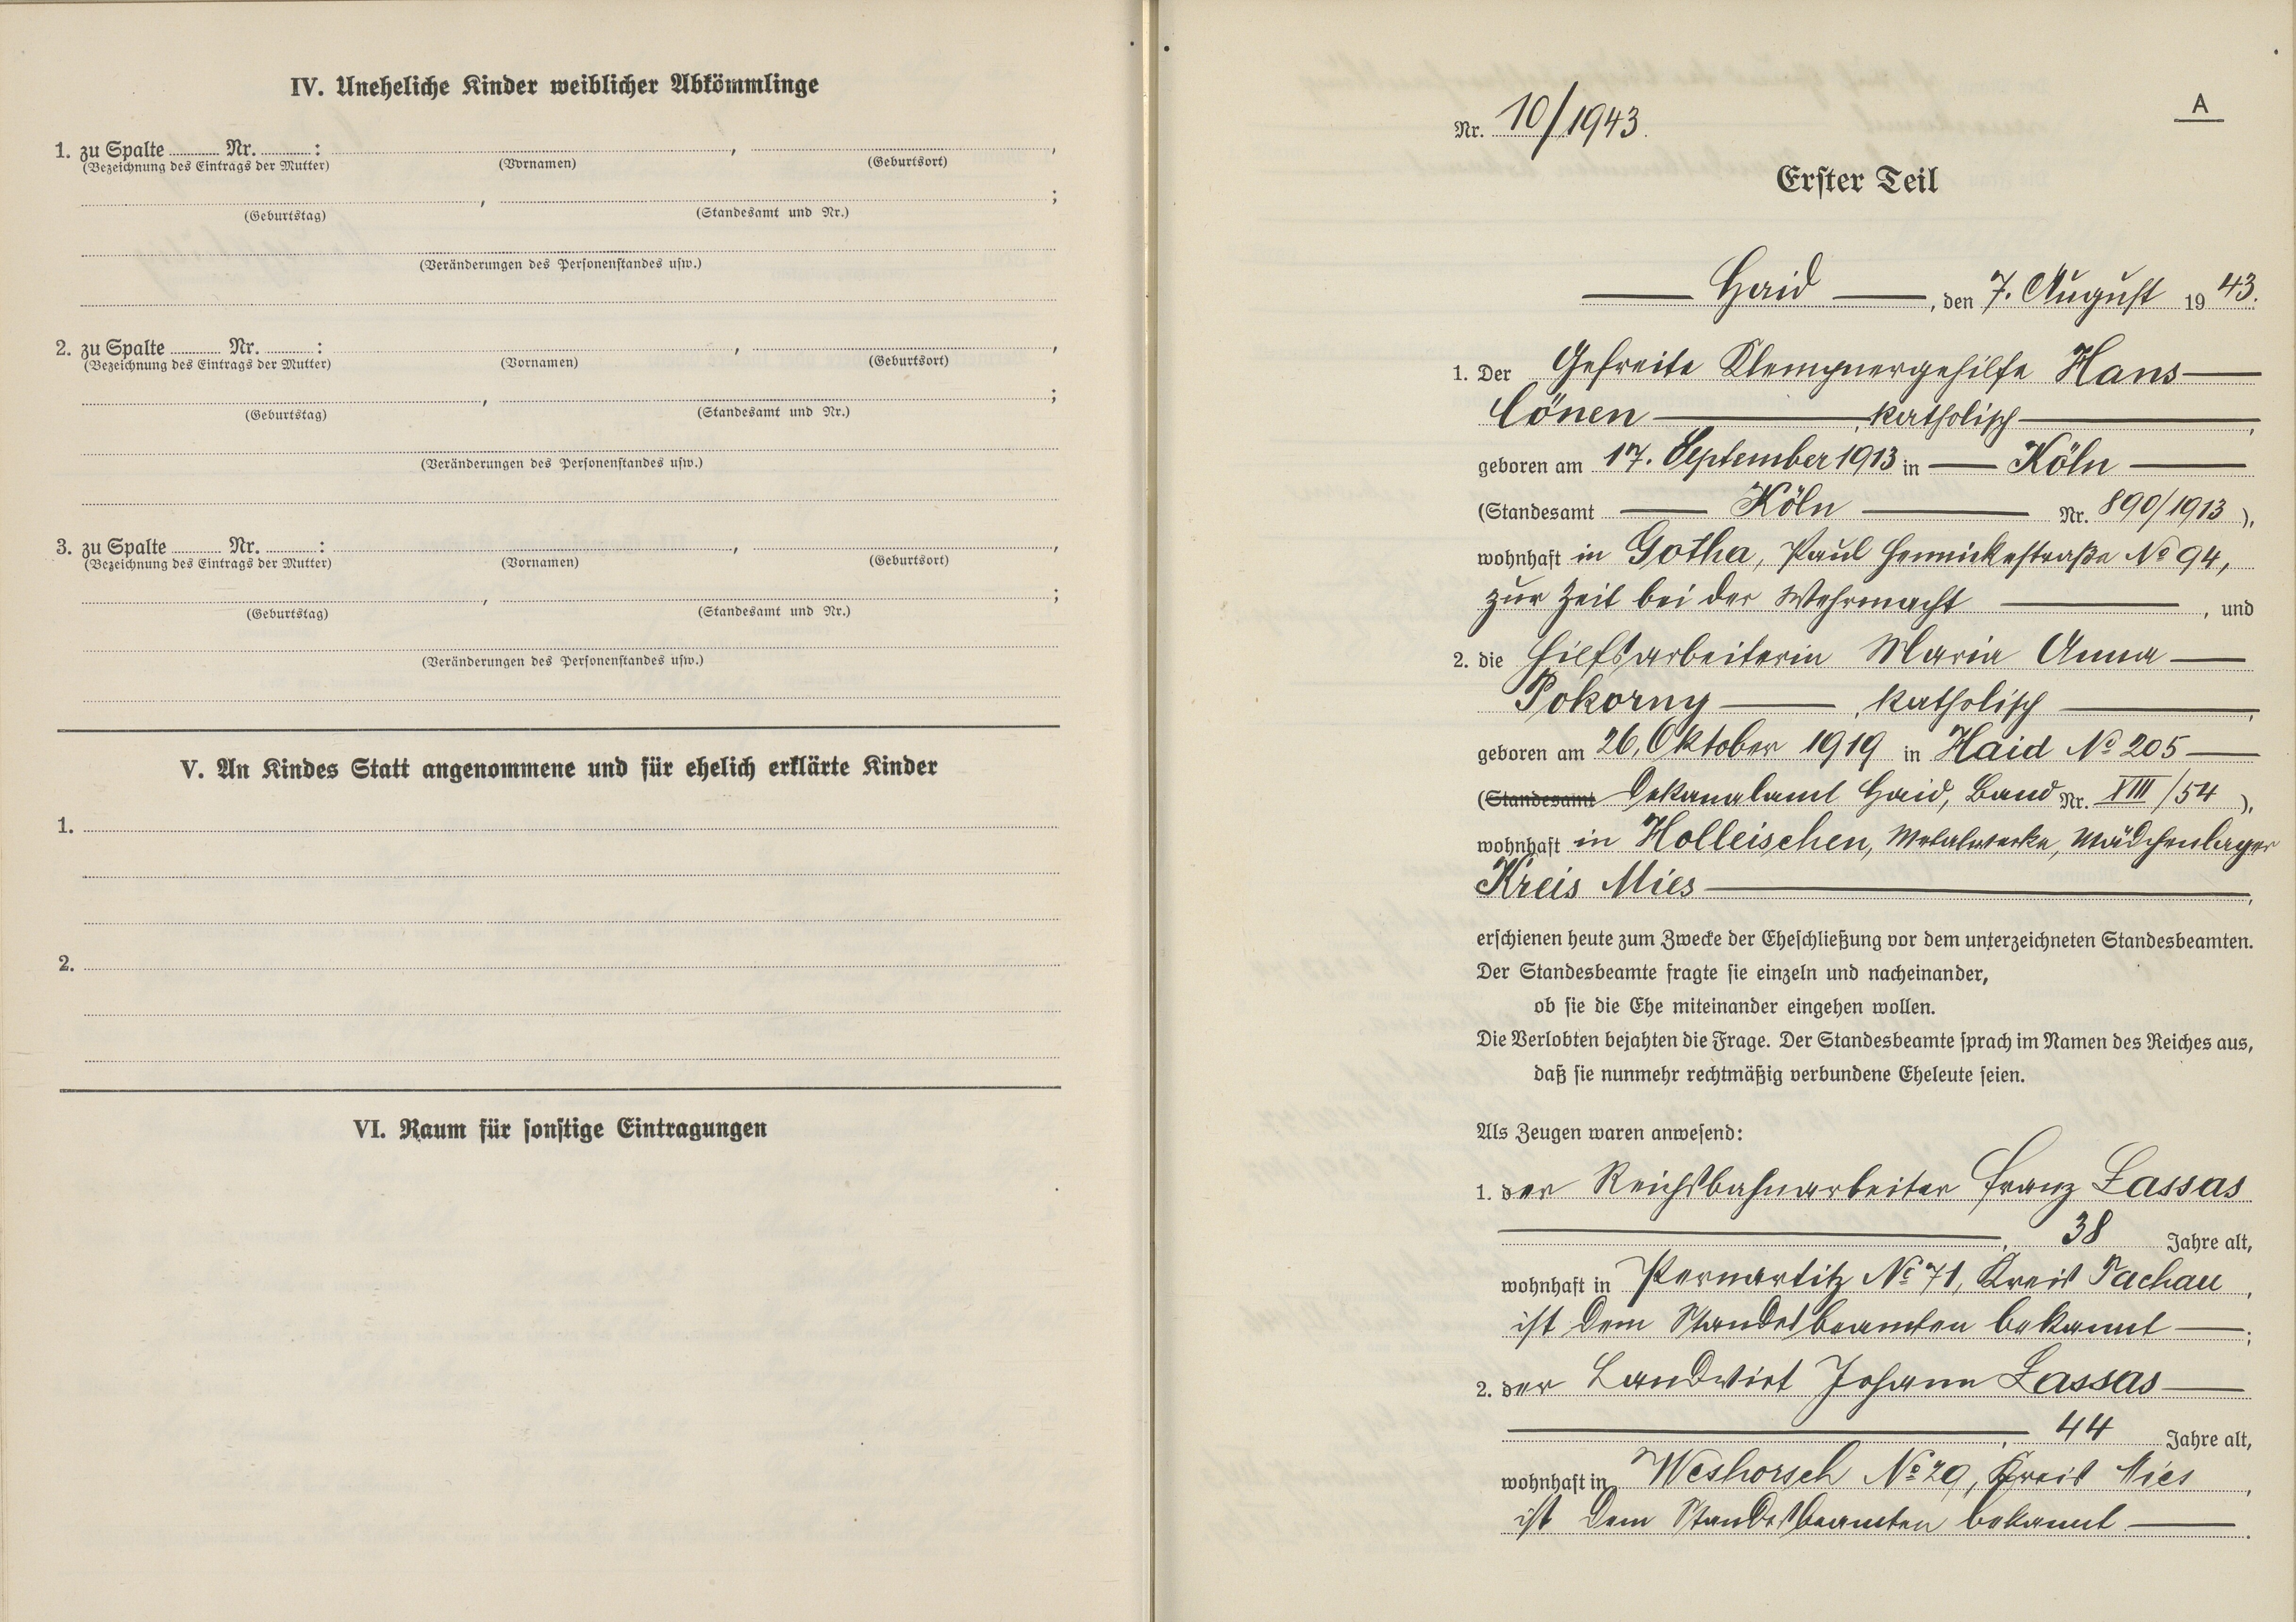 IV. Uneheliche Kinder weiblicher Abkömmlinge
1. zu Spalte ........ Nr. ........ : ........ , ........ ,
(Bezeichnung des Eintrags der Mutter) (Vornamen) (Geburtsort)
........ , ........ ;
(Geburtstag) (Standesamt und Nr.)
(Veränderungen des Personenstandes usw.)
2. zu Spalte ........ Nr. ........ : ........ , ........ ,
(Bezeichnung des Eintrags der Mutter) (Vornamen) (Geburtsort)
........ , ........ ;
(Geburtstag) (Standesamt und Nr.)
(Veränderungen des Personenstandes usw.)
3. zu Spalte ........ Nr. ........ : ........ , ........ ,
(Bezeichnung des Eintrags der Mutter) (Vornamen) (Geburtsort)
........ , ........ ;
(Geburtstag) (Standesamt und Nr.)
(Veränderungen des Personenstandes usw.)
V. An Kindes Statt angenommene und für ehelich erklärte Kinder
1.
2.
VI. Raum für sonstige Eintragungen
A
Nr. 10/1943.
Erster Teil
Haid, den 7. August 1943.
1. Der Gefreite Klempnergehilfe Hans
Cönen, katholisch,
geboren am 17. September 1913 in Köln
(Standesamt Köln Nr. 890/1913),
wohnhaft in Gotha, Paul Hennickestraße No 94,
zur Zeit bei der Wehrmacht, und
2. die Hilfsarbeiterin Maria Anna
Pokorny, katholisch,
geboren am 26. Oktober 1919 in Haid No 205
(Standesamt Dekanalamt Haid, Band Nr. XIII/54),
wohnhaft in Holleischen, Metalwerke, Mädchenlager
Kreis Mies,
erschienen heute zum Zwecke der Eheschließung vor dem unterzeichneten Standesbeamten.
Der Standesbeamte fragte sie einzeln und nacheinander,
ob sie die Ehe miteinander eingehen wollen.
Die Verlobten bejahten die Frage. Der Standesbeamte sprach im Namen des Reiches aus,
daß sie nunmehr rechtmäßig verbundene Eheleute seien.
Als Zeugen waren anwesend:
1. der Reichsbahnarbeiter Franz Lassas
, 38 Jahre alt,
wohnhaft in Pernartitz No 71, Kreis Tachau,
ist dem Standesbeamten bekannt;
2. der Landwirt Johann Lassas
, 44 Jahre alt,
wohnhaft in Weshorsch No 29, Kreis Mies,
ist dem Standesbeamten bekannt.